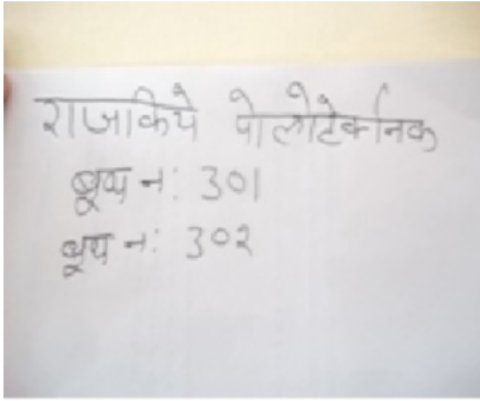 राजकिये पोलोटेकनिक
बूथ नः 301
बूथ नः 302